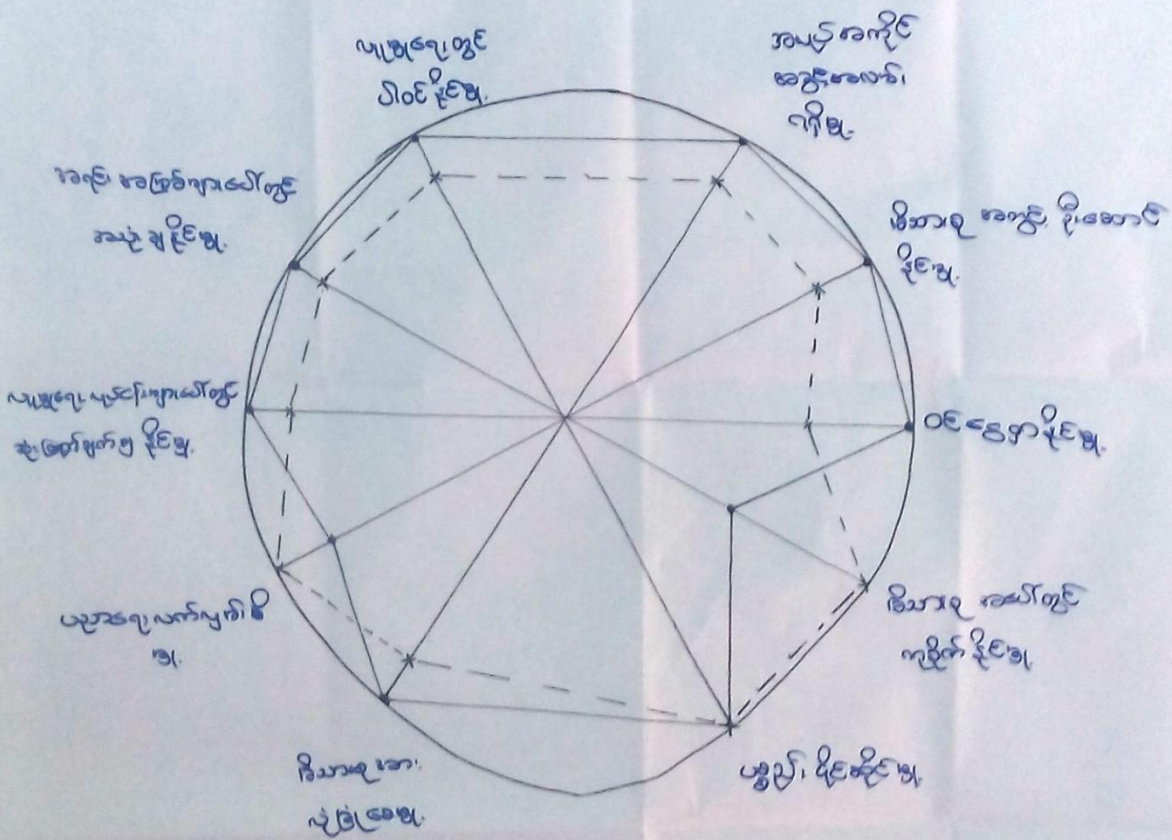 လူမှုရေးတွင်
ပါဝင်နိုင်မှု.
အမည်အတိုင်
အခွင့်အလမ်း
ရရှိမှု.
မိသားစု အတွင်း ဦးဆောင်
နိုင်မှု.
ဝင်ငွေရှာနိုင်မှု.
မိသားစု အပေါ်တွင်
နိုင်မှု.
ပစ္စည်း ပိုင်ဆိုင်မှု.
မိသားစုအား
လုံခြုံစေမှု.
ပညာရေးလက်လှမ်းမှီ
မှု.
လူမှုရေးလုပ်ငန်းများပေါ်တွင်
ဆုံးဖြတ်ချက်ချနိုင်မှု.
အရင်းအမြစ်များပေါ်တွင်
အသုံးချနိုင်မှု.